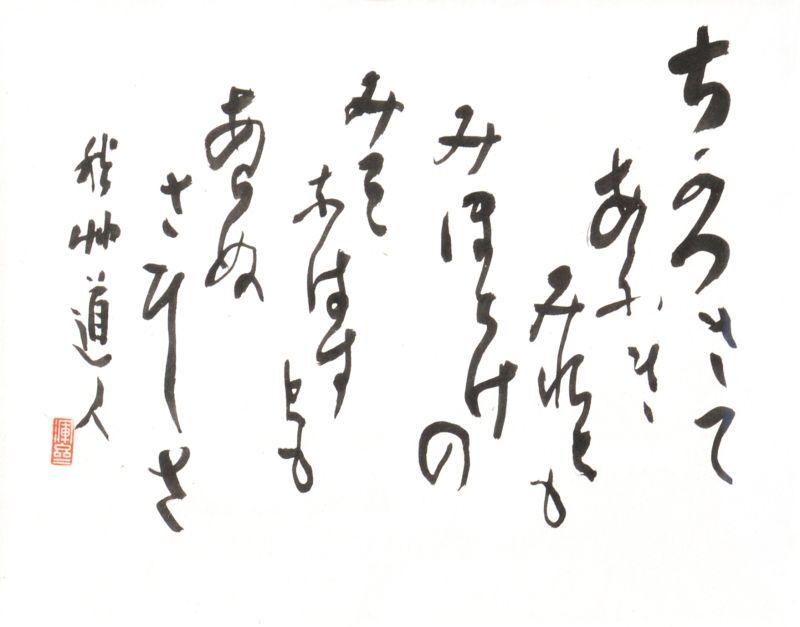 ちかつきて
あふき
みれとも
みほとけの
みそ
なはす
とも
あらぬ
さひしさ
秋艸道人